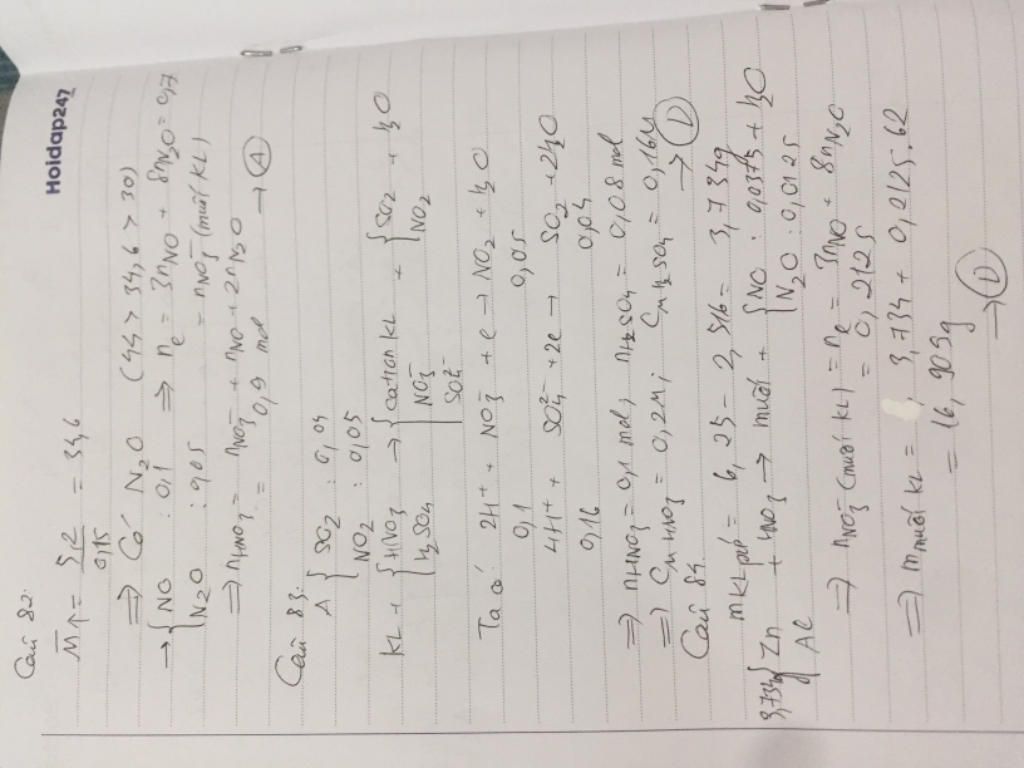 Hoidap247
Câu 82:
M̄↑ = 5,2/0,15 = 34,6
=> Có N₂O (44 > 34,6 > 30)
→ { NO : 0,1 => nₑ = 3nNO + 8nN₂O = 0,7
N₂O : 0,05 = nNO₃⁻ (muối KL)
=> nHNO₃ = nNO₃⁻ + nNO + 2nN₂O
= 0,9 mol → (A)
Câu 83:
A { SO₂ : 0,04
NO₂ : 0,05
KL + { HNO₃ → { cation KL + { SO₂ + H₂O
H₂SO₄ NO₃⁻ NO₂
SO₄²⁻
Ta có: 2H⁺ + NO₃⁻ + e → NO₂ + H₂O
0,1 0,05
4H⁺ + SO₄²⁻ + 2e → SO₂ + 2H₂O
0,16 0,04
=> nHNO₃ = 0,1 mol, nH₂SO₄ = 0,08 mol
=> CM HNO₃ = 0,2M; CM H₂SO₄ = 0,16M
→ (D)
Câu 84.
mKL pứ = 6,25 - 2,516 = 3,734g
3,734g { Zn + HNO₃ → muối + { NO : 0,0375 + H₂O
Al N₂O : 0,0125
=> nNO₃⁻ (muối KL) = nₑ = 3nNO + 8nN₂O
= 0,2125
=> m muối KL = 3,734 + 0,2125.62
= 16,909g
→ (D)